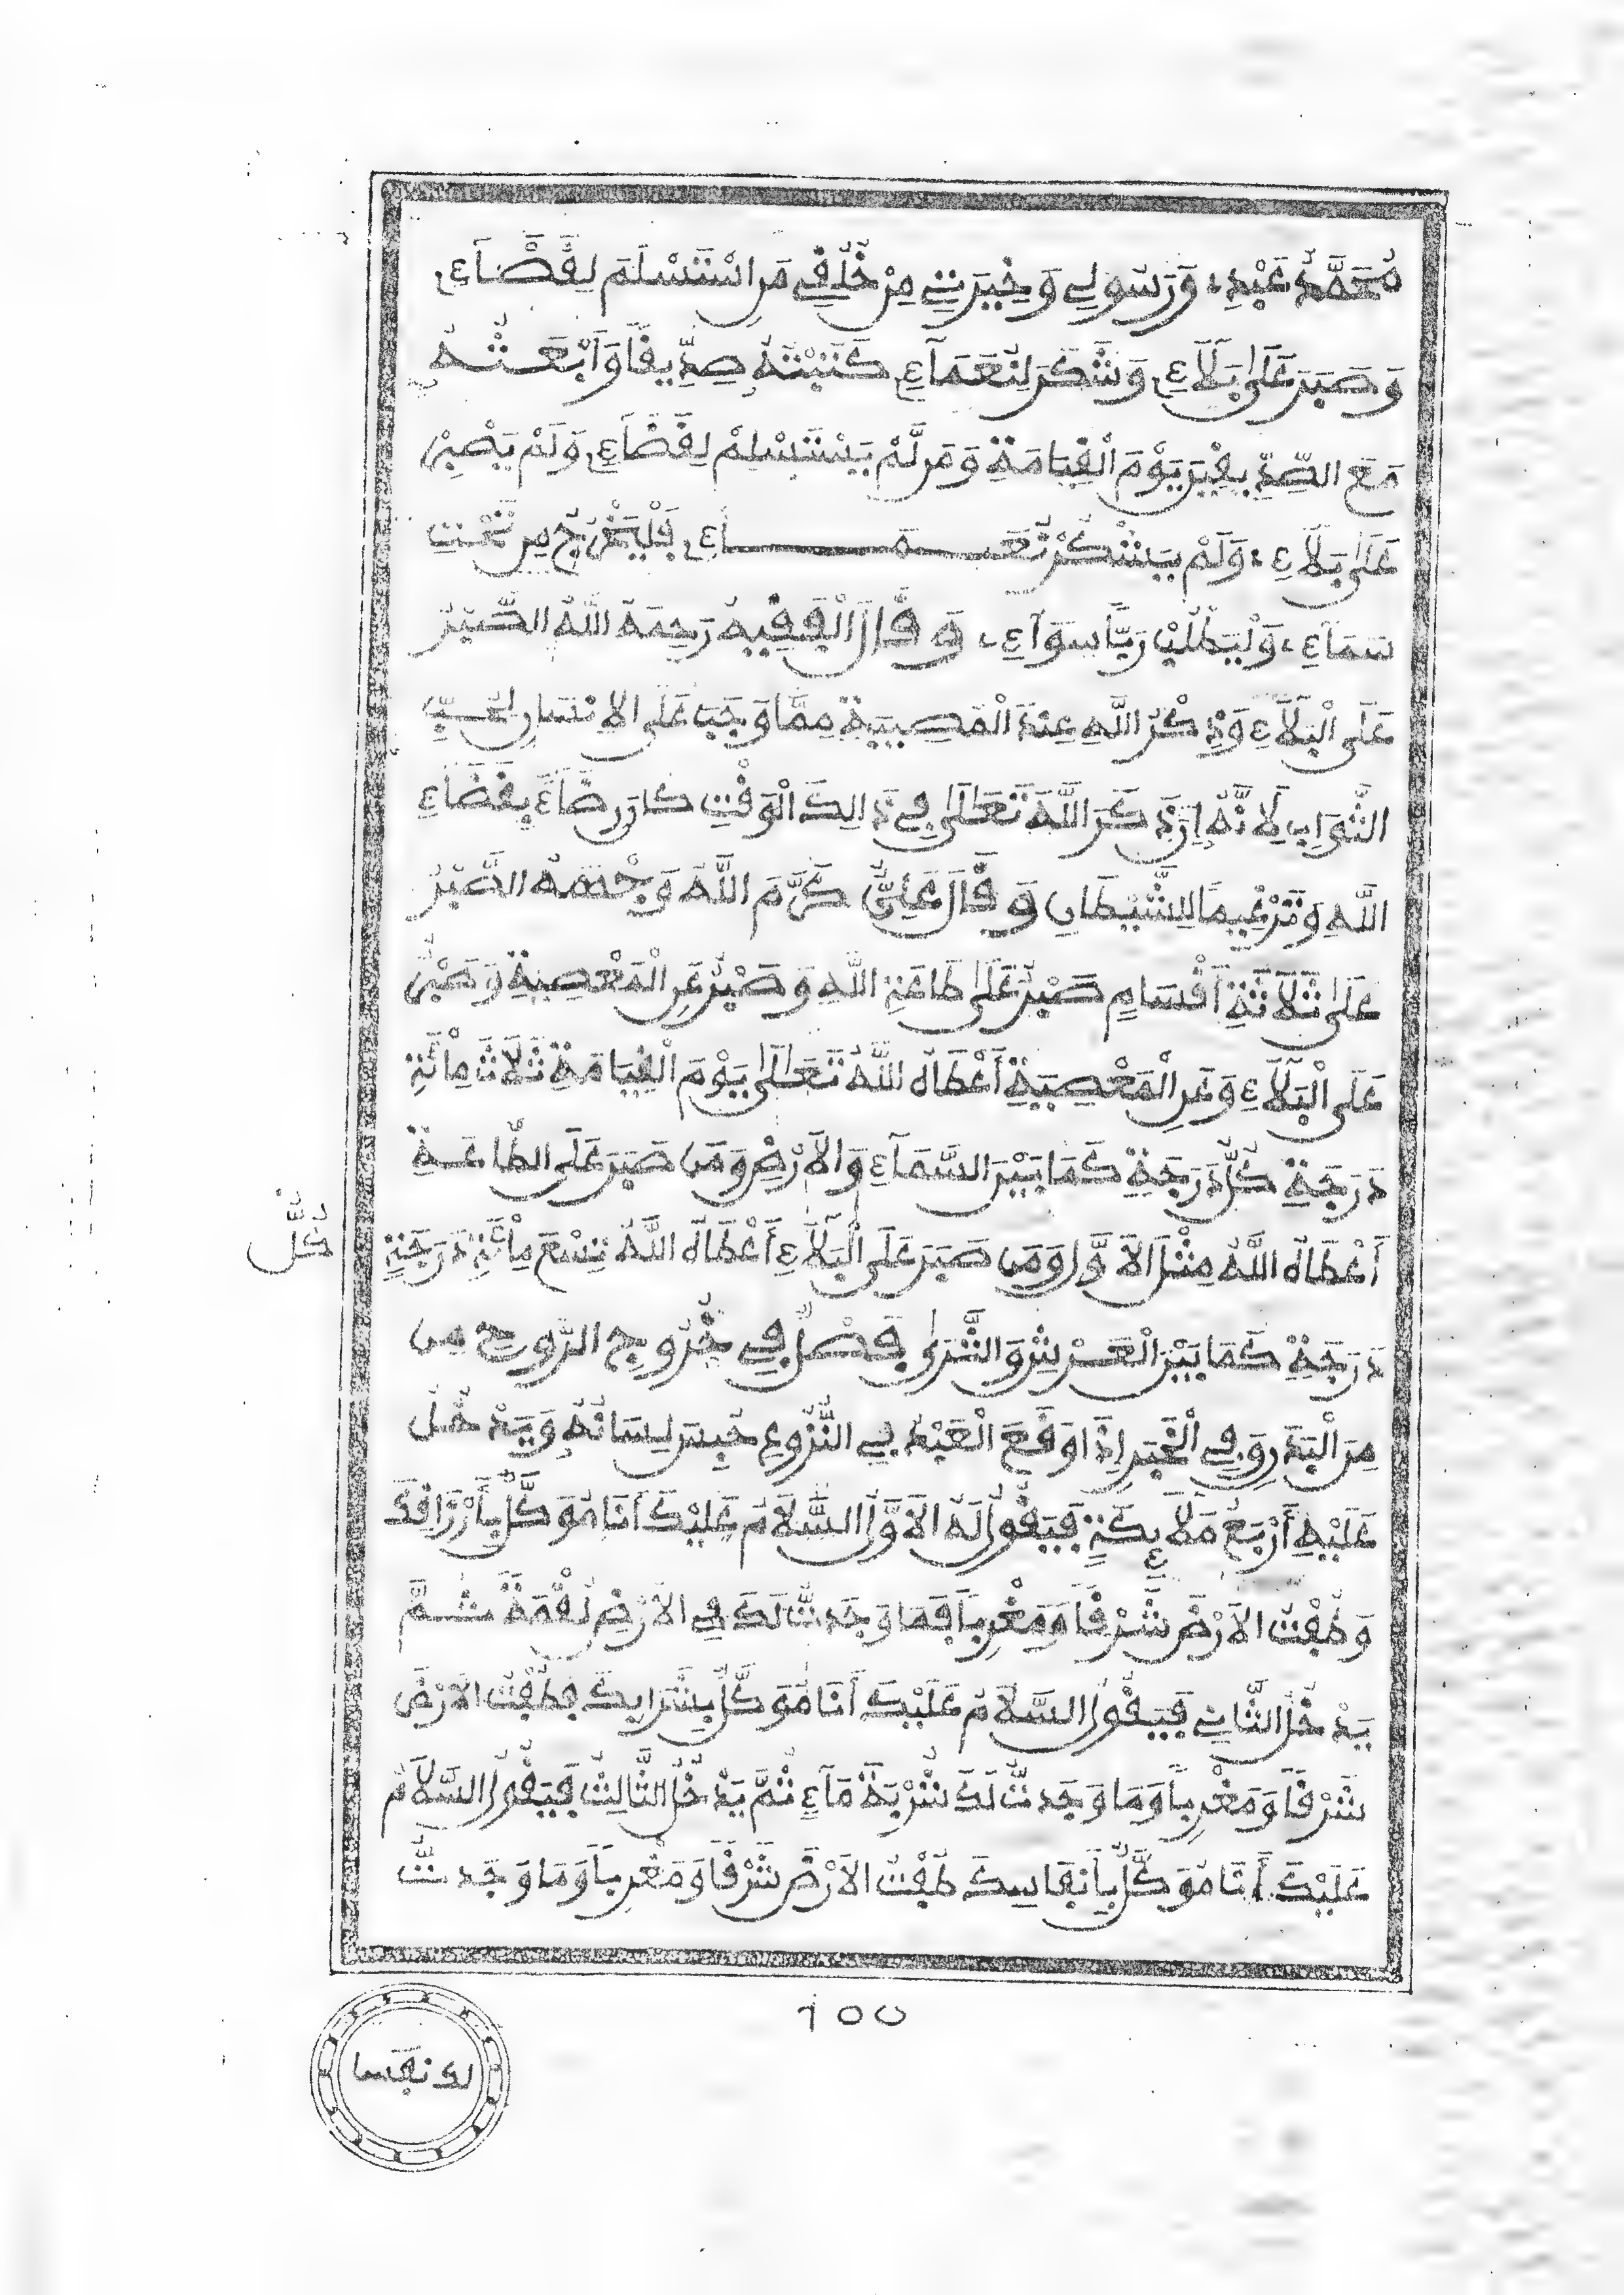 مُحَمَّدٌ عَبْدِے وَرَسُولِے وَخِيَرَتِے مِنْ خَلْقِے مَنِ اسْتَسْلَمَ لِقَضَآءِے
وَصَبَرَ عَلَىٰ بَلَآءِے وَشَكَرَ لِنَعْمَآءِے كَتَبْتُهُ صِدِّيقًا وَأَبْعَثُهُ
مَعَ الصِّدِّيقِينَ يَوْمَ الْقِيَامَةِ وَمَن لَّمْ يَسْتَسْلِمْ لِقَضَآءِے وَلَمْ يَصْبِرْ
عَلَىٰ بَلَآءِے وَلَمْ يَشْكُرْ نَعْمَآءِے فَلْيَخْرُجْ مِن تَحْتِ
سَمَآءِے وَلْيَطْلُبْ رَبًّا سِوَآءِے وَقَالَ الْفَقِيهُ رَحِمَهُ اللَّهُ الصَّبْرُ
عَلَى الْبَلَآءِ وَذِكْرُ اللَّهِ عِنْدَ الْمُصِيبَةِ مِمَّا وَجَبَ عَلَى الاِنْسَانِ لِحُبِّ
الثَّوَابِ لِأَنَّهُ إِن ذَكَرَ اللَّهَ تَعَالَىٰ فِے ذَالِكَ الْوَقْتِ كَانَ رِضَآءً بِقَضَآءِ
اللَّهِ وَتَرْغِيمًا لِلشَّيْطَانِ وَقَالَ عَلِيٌّ كَرَّمَ اللَّهُ وَجْهَهُ الصَّبْرُ
عَلَىٰ ثَلَاثَةِ أَقْسَامٍ صَبْرٌ عَلَىٰ طَاعَةِ اللَّهِ وَصَبْرٌ عَنِ الْمَعْصِيَةِ وَصَبْرٌ
عَلَى الْبَلَآءِ وَعَنِ الْمَعْصِيَةِ أَعْطَاهُ اللَّهُ تَعَالَىٰ يَوْمَ الْقِيَامَةِ ثَلَاثَ مِائَةِ
دَرَجَةٍ كُلُّ دَرَجَةٍ كَمَا بَيْنَ السَّمَآءِ وَالاَرْضِ وَمَن صَبَرَ عَلَى الطَّاعَةِ
أَعْطَاهُ اللَّهُ مِثْلَ الاَوَّلِ وَمَن صَبَرَ عَلَى الْبَلَآءِ أَعْطَاهُ اللَّهُ تِسْعَ مِائَةِ دَرَجَةٍ
كُلُّ
دَرَجَةٍ كَمَا بَيْنَ الْعَرْشِ وَالثَّرَىٰ فَصْلٌ فِے خُرُوجِ الرُّوحِ مِن
مِنَ الْبَدَنِ وَفِے الْخَبَرِ إِذَا وَقَعَ الْعَبْدُ فِے النَّزْعِ حُبِسَ لِسَانُهُ وَيَدْخُلُ
عَلَيْهِ أَرْبَعُ مَلَآئِكَةٍ فَيَقُولُ لَهُ الاَوَّلُ السَّلَامُ عَلَيْكَ أَنَا مُوَكَّلٌ بِأَرْزَاقِكَ
وَطُفْتُ الاَرْضَ شَرْقًا وَمَغْرِبًا فَمَا وَجَدتُّ لَكَ فِے الاَرْضِ لُقْمَةً ثُمَّ
يَدْخُلُ الثَّانِے فَيَقُولُ السَّلَامُ عَلَيْكَ أَنَا مُوَكَّلٌ بِشَرَابِكَ فَطُفْتُ الاَرْضَ
شَرْقًا وَمَغْرِبًا وَمَا وَجَدتُّ لَكَ شُرْبَةَ مَآءٍ ثُمَّ يَدْخُلُ الثَّالِثُ فَيَقُولُ السَّلَامُ
عَلَيْكَ أَنَا مُوَكَّلٌ بِأَنْفَاسِكَ طُفْتُ الاَرْضَ شَرْقًا وَمَغْرِبًا وَمَا وَجَدتُّ
لَكَ نَفَسا